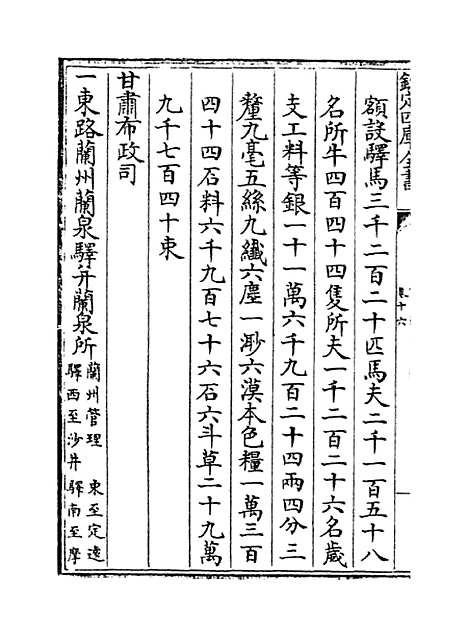 欽定四庫全書
卷十六
額設驛馬三千二百二十匹馬夫二千一百五十八
名所牛四百四十四隻所夫一千二百二十六名歲
支工料等銀一十一萬六千九百二十四兩四分三
釐九毫五絲九纖六塵一渺六漠本色糧一萬三百
四十四石料六千九百七十六石六斗草二十九萬
九千七百四十束
甘肅布政司
一東路蘭州蘭泉驛并蘭泉所蘭州管理 東至定遠
驛西至沙井 驛南至摩